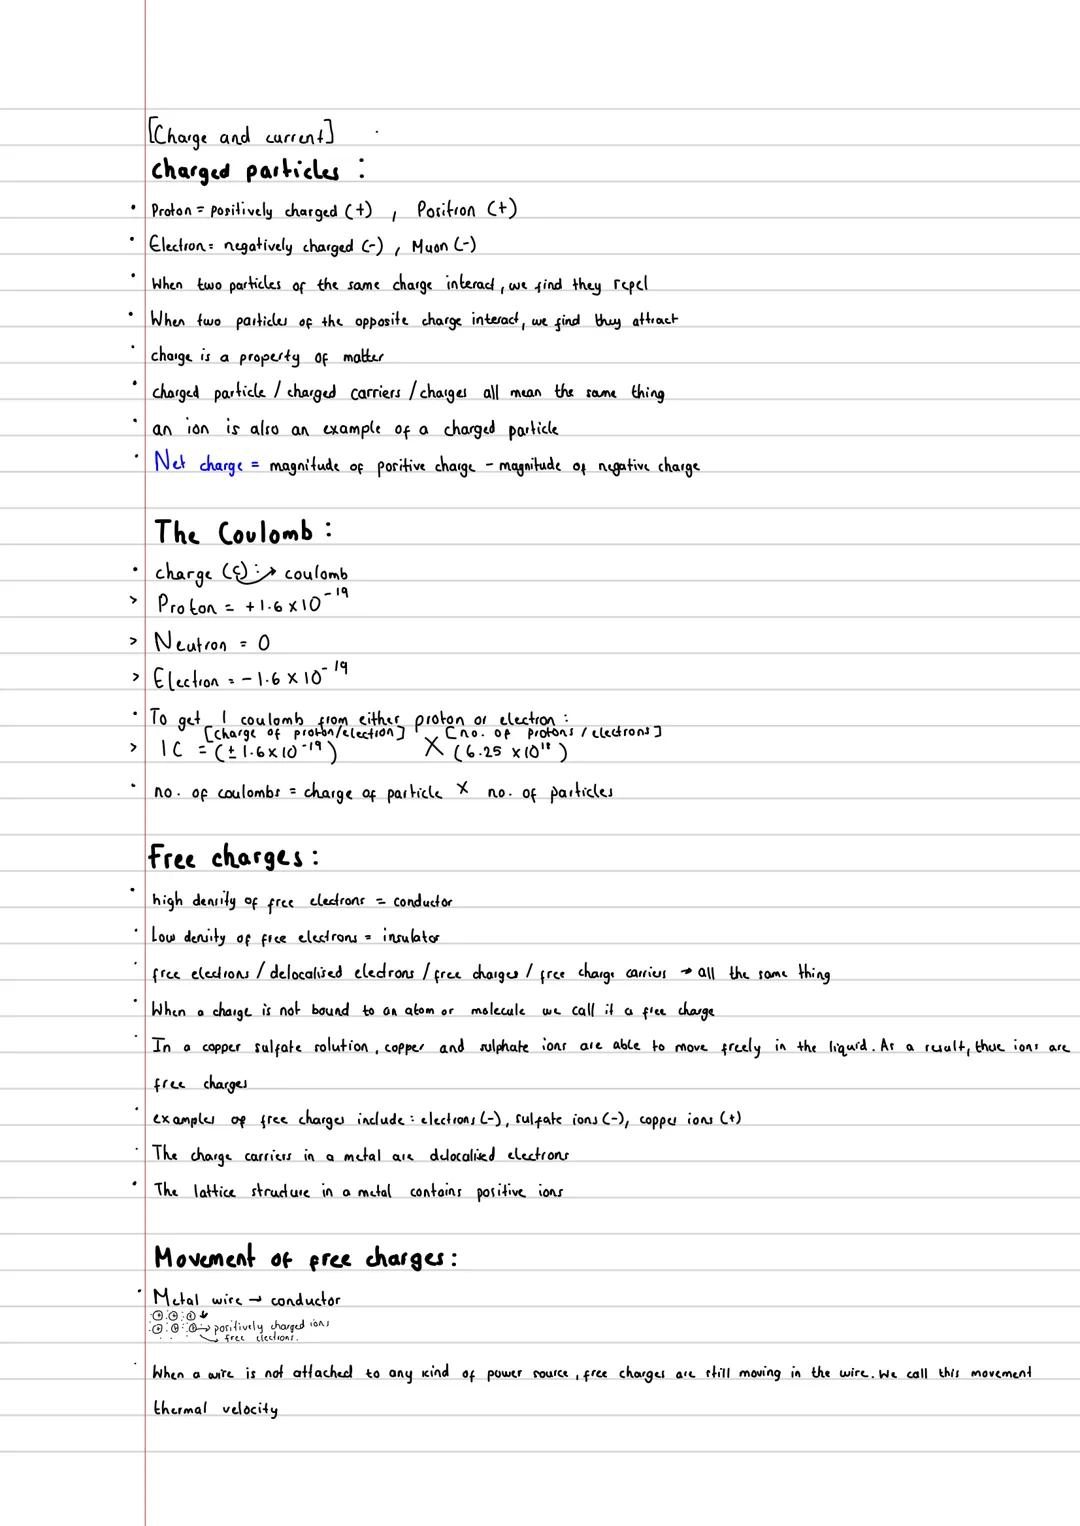 [Charge and current]
charged particles :
• Proton = positively charged (+) , Positron (+)
• Electron = negatively charged (-) , Muon (-)
• When two particles of the same charge interact, we find they repel
• When two particles of the opposite charge interact, we find they attract
• charge is a property of matter
• charged particle / charged carriers / charges all mean the same thing
• an ion is also an example of a charged particle
• Net charge = magnitude of positive charge - magnitude of negative charge
The Coulomb :
• charge (C) : → coulomb
> Proton = +1.6 x 10⁻¹⁹
> Neutron = 0
> Electron = -1.6 x 10⁻¹⁹
• To get 1 coulomb from either proton or electron :
[charge of proton/electron] [no. of protons / electrons]
> 1C = (± 1.6 x 10⁻¹⁹) X (6.25 x 10¹⁸)
• no. of coulombs = charge of particle x no. of particles
Free charges :
• high density of free electrons = conductor
• Low density of free electrons = insulator
• free electrons / delocalised electrons / free charges / free charge carriers → all the same thing
• When a charge is not bound to an atom or molecule we call it a free charge
• In a copper sulfate solution, copper and sulphate ions are able to move freely in the liquid. As a result, these ions are
free charges
• examples of free charges include : electrons (-), sulfate ions (-), copper ions (+)
• The charge carriers in a metal are delocalised electrons
• The lattice structure in a metal contains positive ions
Movement of free charges :
• Metal wire → conductor
→ positively charged ions
free electrons.
• When a wire is not attached to any kind of power source, free charges are still moving in the wire. We call this movement
thermal velocity